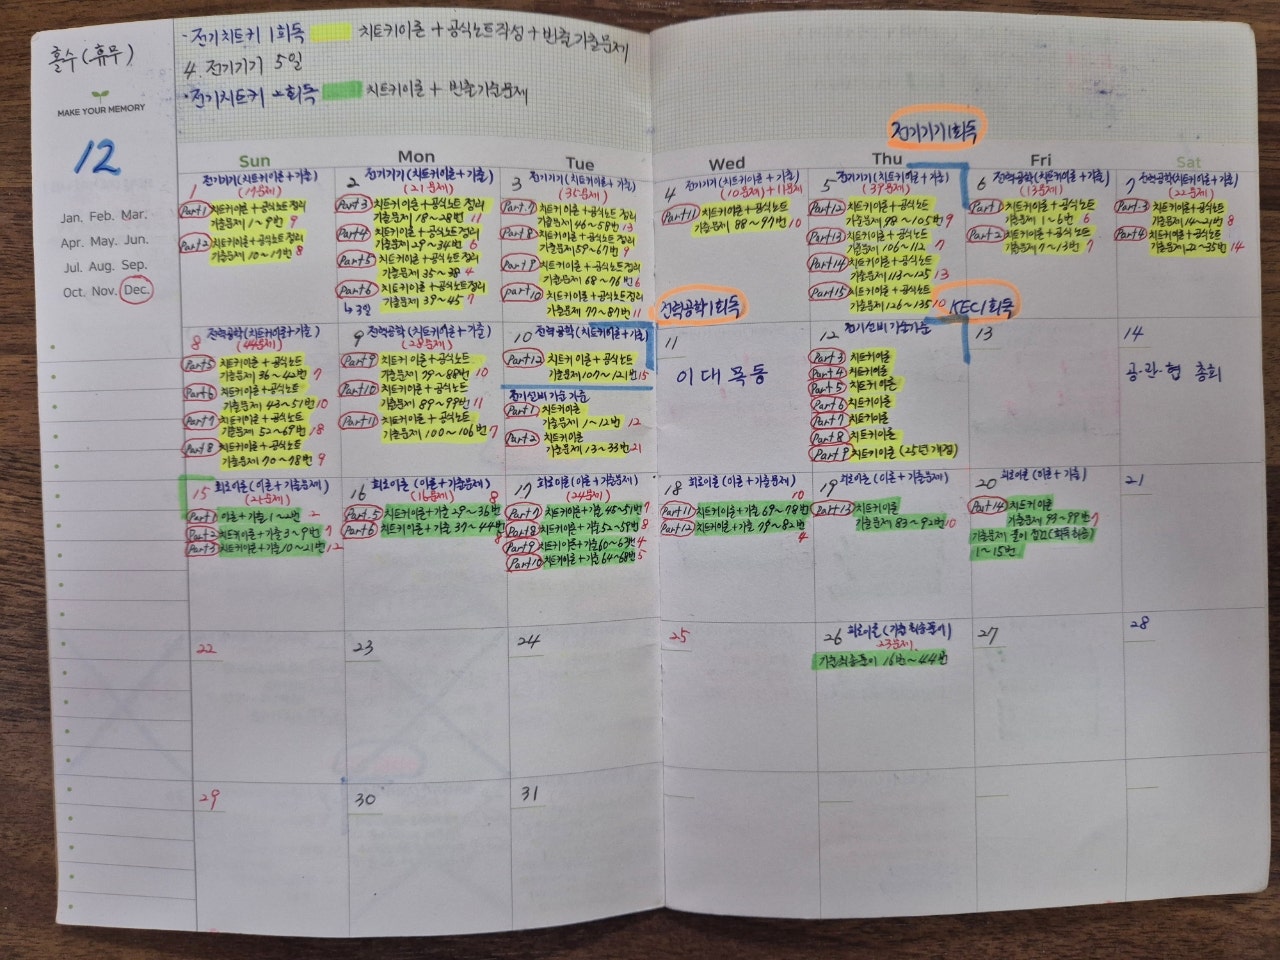 홀수(휴무)
· 전기치트키 1회독 치트키이론 + 공식노트작성 + 빈출기출문제
4. 전기기기 5일
· 전기치트키 2회독 치트키이론 + 빈출기출문제
MAKE YOUR MEMORY
12
Jan. Feb. Mar.
Apr. May. Jun.
Jul. Aug. Sep.
Oct. Nov. Dec.
전기기기 1회독
Sun Mon Tue Wed Thu Fri Sat
1 전기기기(치트키이론+기출)
(17문제)
Part1 치트키이론+공식노트정리
기출문제 1~9번 9
Part2 치트키이론+공식노트정리
기출문제 10~17번 8
2 전기기기(치트키이론+기출)
(21문제)
Part3 치트키이론+공식노트정리
기출문제 18~28번 11
Part4 치트키이론+공식노트정리
기출문제 29~34번 6
Part5 치트키이론+공식노트정리
기출문제 35~38 4
Part6 치트키이론+공식노트정리
기출문제 39~45 7
↳3일
3 전기기기(치트키이론+기출)
(35문제)
Part.7 치트키이론+공식노트정리
기출문제 46~58번 13
Part8 치트키이론+공식노트정리
기출문제 59~67번 9
Part9 치트키이론+공식노트정리
기출문제 68~76번
Part10 치트키이론+공식노트정리
기출문제 77~87번 11
4 전기기기(치트키이론+기출)
(10문제)+11문제
Part11 치트키이론+공식노트
기출문제 88~97번 10
5 전기기기(치트키이론+기출)
(39문제)
Part12 치트키이론+공식노트
기출문제 98~105번 9
Part13 치트키이론+공식노트
기출문제 106~112 7
Part14 치트키이론+공식노트
기출문제 113~125 13
Part15 치트키이론+공식노트
기출문제 126~135 10
6 전력공학(치트키이론+기출)
(13문제)
Part1 치트키이론+공식노트
기출문제 1~6번 6
Part2 치트키이론+공식노트
기출문제 7~13번 7
7 전력공학(치트키이론+기출)
(22문제)
Part3 치트키이론+공식노트
기출문제 14~21번 8
Part4 치트키이론+공식노트
기출문제 22~35번 14
전력공학 1회독
KEC 1회독
8 전력공학(치트키이론+기출)
(44문제)
Part5 치트키이론+공식노트
기출문제 36~42번 7
Part6 치트키이론+공식노트
기출문제 43~51번 10
Part7 치트키이론+공식노트
기출문제 52~69번 18
Part8 치트키이론+공식노트
기출문제 70~78번 9
9 전력공학(치트키이론+기출)
(28문제)
Part9 치트키이론+공식노트
기출문제 79~88번 10
Part10 치트키이론+공식노트
기출문제 89~99번 11
Part11 치트키이론+공식노트
기출문제 100~106번 7
10 전력공학(치트키이론+기출)
Part12 치트키이론+공식노트
기출문제 107~121번 15
전기설비기술기준
Part1 치트키이론
기출문제 1~12번 12
Part2 치트키이론
기출문제 13~33번 21
11
이대목동
12 전기설비기술기준
Part3 치트키이론
Part4 치트키이론
Part5 치트키이론
Part6 치트키이론
Part7 치트키이론
Part8 치트키이론
Part9 치트키이론(25년개정)
13
14
공·관·협 총회
15 회로이론(이론+기출문제)
(21문제)
Part1 이론+기출 1~2번 2
Part2 치트키이론+기출 3~9번 7
Part3 치트키이론+기출 10~21번 12
16 회로이론(이론+기출문제)
(16문제)
Part.5 치트키이론+기출 29~36번 8
Part6 치트키이론+기출 37~44번 8
17 회로이론(이론+기출문제)
(24문제)
Part7 치트키이론+기출 45~51번 7
Part8 치트키이론+기출 52~59번 8
Part9 치트키이론+기출 60~63번 4
Part10 치트키이론+기출 64~68번 5
18 회로이론(이론+기출문제)
Part11 치트키이론+기출 69~78번 10
Part12 치트키이론+기출 79~82번 4
19 회로이론(이론+기출문제)
Part13 치트키이론
기출문제 83~92번 10
20 회로이론(이론+기출)
Part14 치트키이론
기출문제 93~99번 7
기출문제 풀이 점검(회독최종)
1~15번
21
22
23
24
25
26 회로이론(기출최종풀이)
23문제
기출최종풀이 16번~44번
27
28
29
30
31